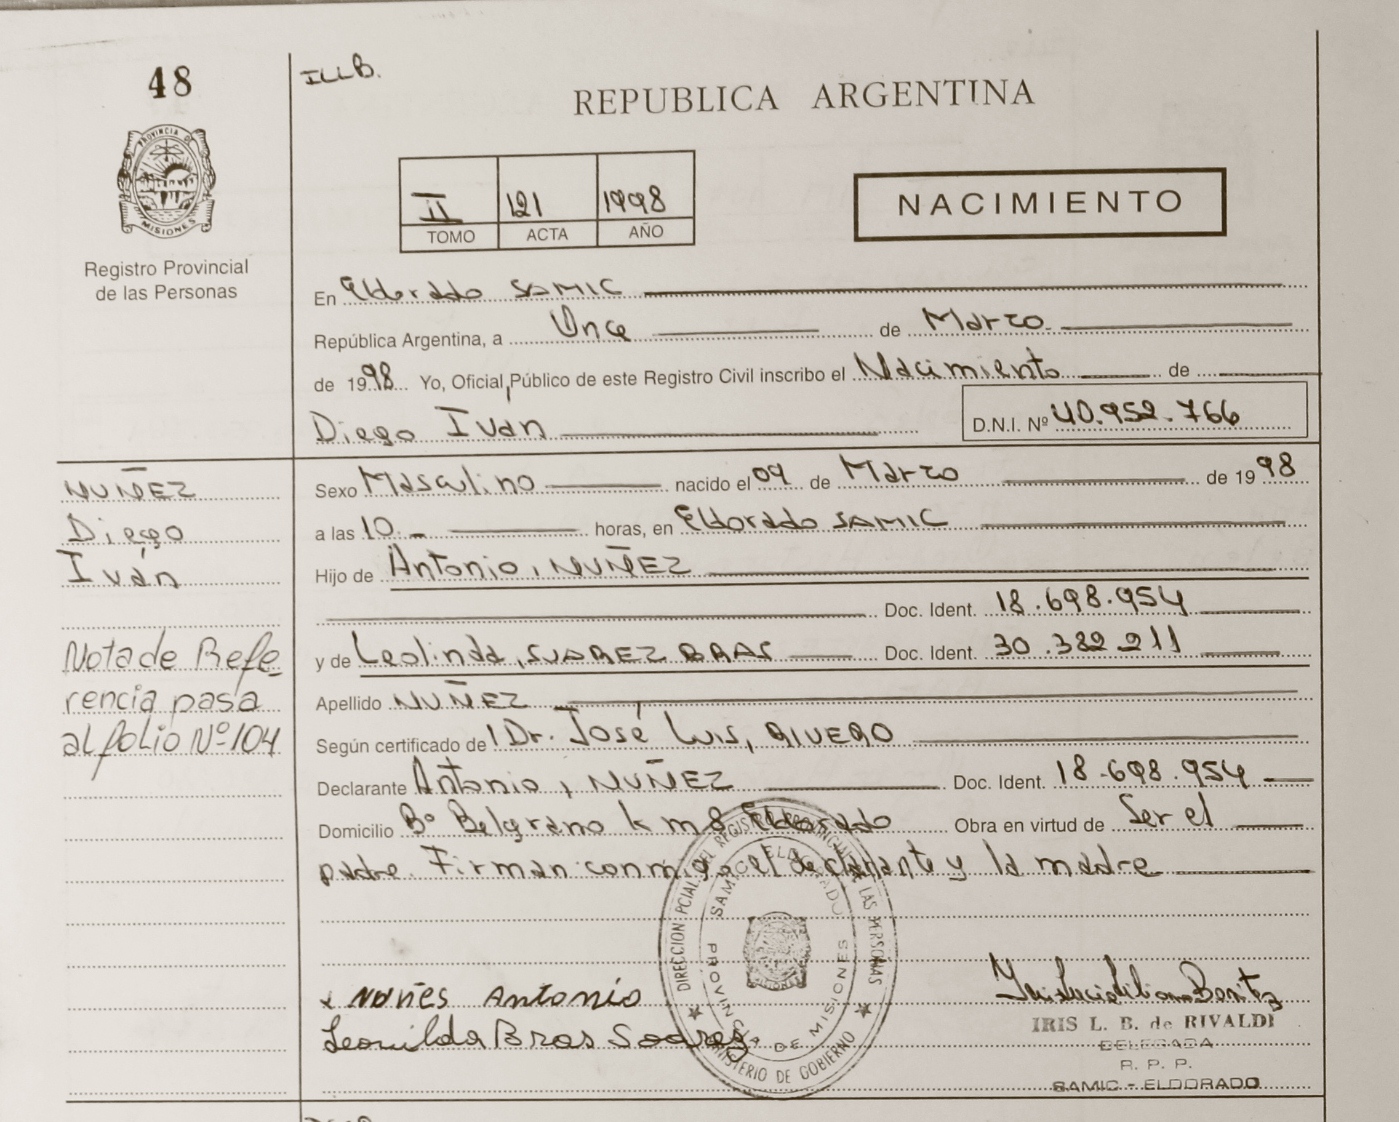 48
ILLB.
REPUBLICA ARGENTINA
PROVINCIA DE
MISIONES
II 121 1998
TOMO ACTA AÑO
NACIMIENTO
Registro Provincial
de las Personas
En Eldorado SAMIC
República Argentina, a Once de Marzo
de 1998 Yo, Oficial Público de este Registro Civil inscribo el Nacimiento de
Diego Iván D.N.I. Nº 40.952.766
NUÑEZ
Diego
Iván
Nota de Refe
rencia pasa
al folio Nº 104
Sexo Masculino nacido el 09 de Marzo de 1998
a las 10 horas, en Eldorado SAMIC
Hijo de Antonio, NUÑEZ
Doc. Ident. 18.698.954
y de Leolinda, SUAREZ BRAS Doc. Ident. 30.382.211
Apellido NUÑEZ
Según certificado de l Dr. José Luis, RIVERO
Declarante Antonio, NUÑEZ Doc. Ident. 18.698.954
Domicilio Bº Belgrano km 8 Eldorado Obra en virtud de Ser el
padre. Firman conmigo el declarante y la madre
DIRECCION PCIAL DEL REGISTRO PROVINCIAL DE LAS PERSONAS
SAMIC ELDORADO
PROVINCIA DE MISIONES
MINISTERIO DE GOBIERNO
x Nuñes Antonio
Leonilda Bras Soarez
IRIS L. B. de RIVALDI
DELEGADA
R. P. P.
SAMIC - ELDORADO